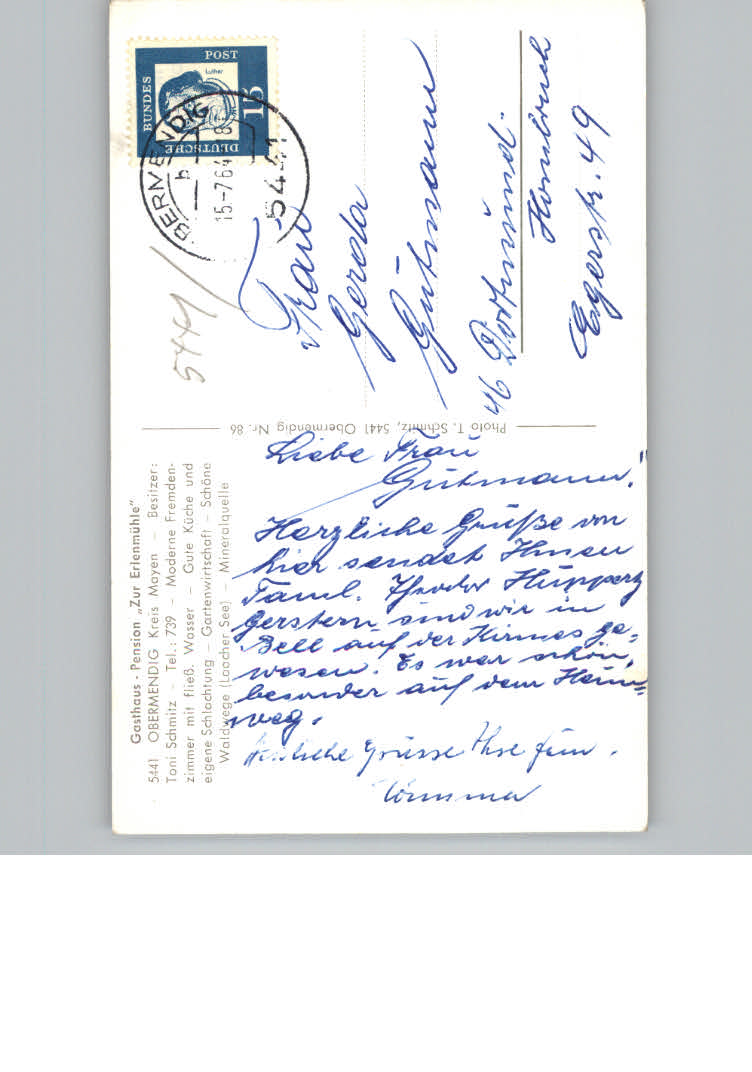 Gasthaus - Pension „Zur Erlenmühle"
5441 OBERMENDIG Kreis Mayen – Besitzer:
Toni Schmitz – Tel.: 739 – Moderne Fremden-
zimmer mit fließ. Wasser – Gute Küche und
eigene Schlachtung – Gartenwirtschaft – Schöne
Waldwege (Laacher See) – Mineralquelle
Liebe Frau
Gutmann!
Herzliche Grüße von
hier sendet Ihnen
Faml. Theodor Huppertz
Gerstern sind wir in
Bell auf der Kirmes ge-
wesen. Es war schön,
besonder auf dem Heim-
weg.
Herzliche Grüsse Ihre fam.
Photo T. Schmitz, 5441 Obermendig Nr. 86
DEUTSCHE
BUNDES
POST
15
Luther
OBERMENDIG
b
15.-7.64.-18
5441
5441
Frau
Gerda
Gutmann
46 Dortmund-
Hombruch
Egerstr. 49